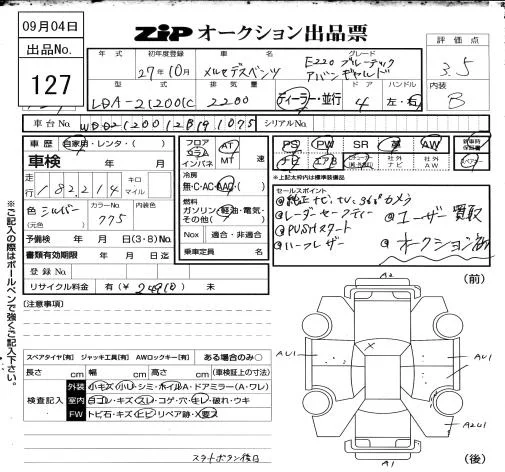 09月04日
出品No.
127
ZiP オークション出品票
年式 初年度登録 車名 グレード 評価点
27年10月 メルセデスベンツ E220 ブルーテック アバンギャルド 3.5
型式 排気量 ドア ハンドル 内装
LDA-212001C 2200 ディーラー・並行 4 左・右 B
車台No. シリアルNo.
車歴 自家用・レンタ・( )
車検 年 月
走行 182,214 キロ マイル
色 シルバー カラーNo. 775 内装色
(元色)
予備検 年 月 日(3・8)No.
書類有効期限 年 月 日迄
登録No.
リサイクル料金 有(¥ ) 未
フロア コラム インパネ AT MT 速
冷房
無・C・AC・AAC( )
燃料
ガソリン・軽油・電気・その他( )
Nox 適合・非適合
乗車定員 名
PS PW SR 革 AW
ナビ エアB 社外ナビ 社外AW
※上記太わく内は標準装備品
セールスポイント
@純正ナビ、TV、360°カメラ
@レーダーセーフティー
@PUSHスタート
@ハーフレザー
@ユーザー買取
@オークション
※ご記入の際はボールペンで強くご記入下さい。
[注意事項]
スペアタイヤ[有] ジャッキ工具[有] AWロックキー[有] ある場合のみ○
長さ cm 幅 cm 高さ cm (車検証上の寸法)
検査記入
外装 小キズ・小U・トシミ・ホイルA・ドアミラー(A・ワレ)
室内 ヨゴレ・キズ・スレ・コゲ・穴・キレ・破れ・ウキ
FW トビ石・キズ・ヒビ・リペア跡・X要ス
スタートボタン後日
(前)
A2
X
AU1
AU1
A2U1
A1
(後)